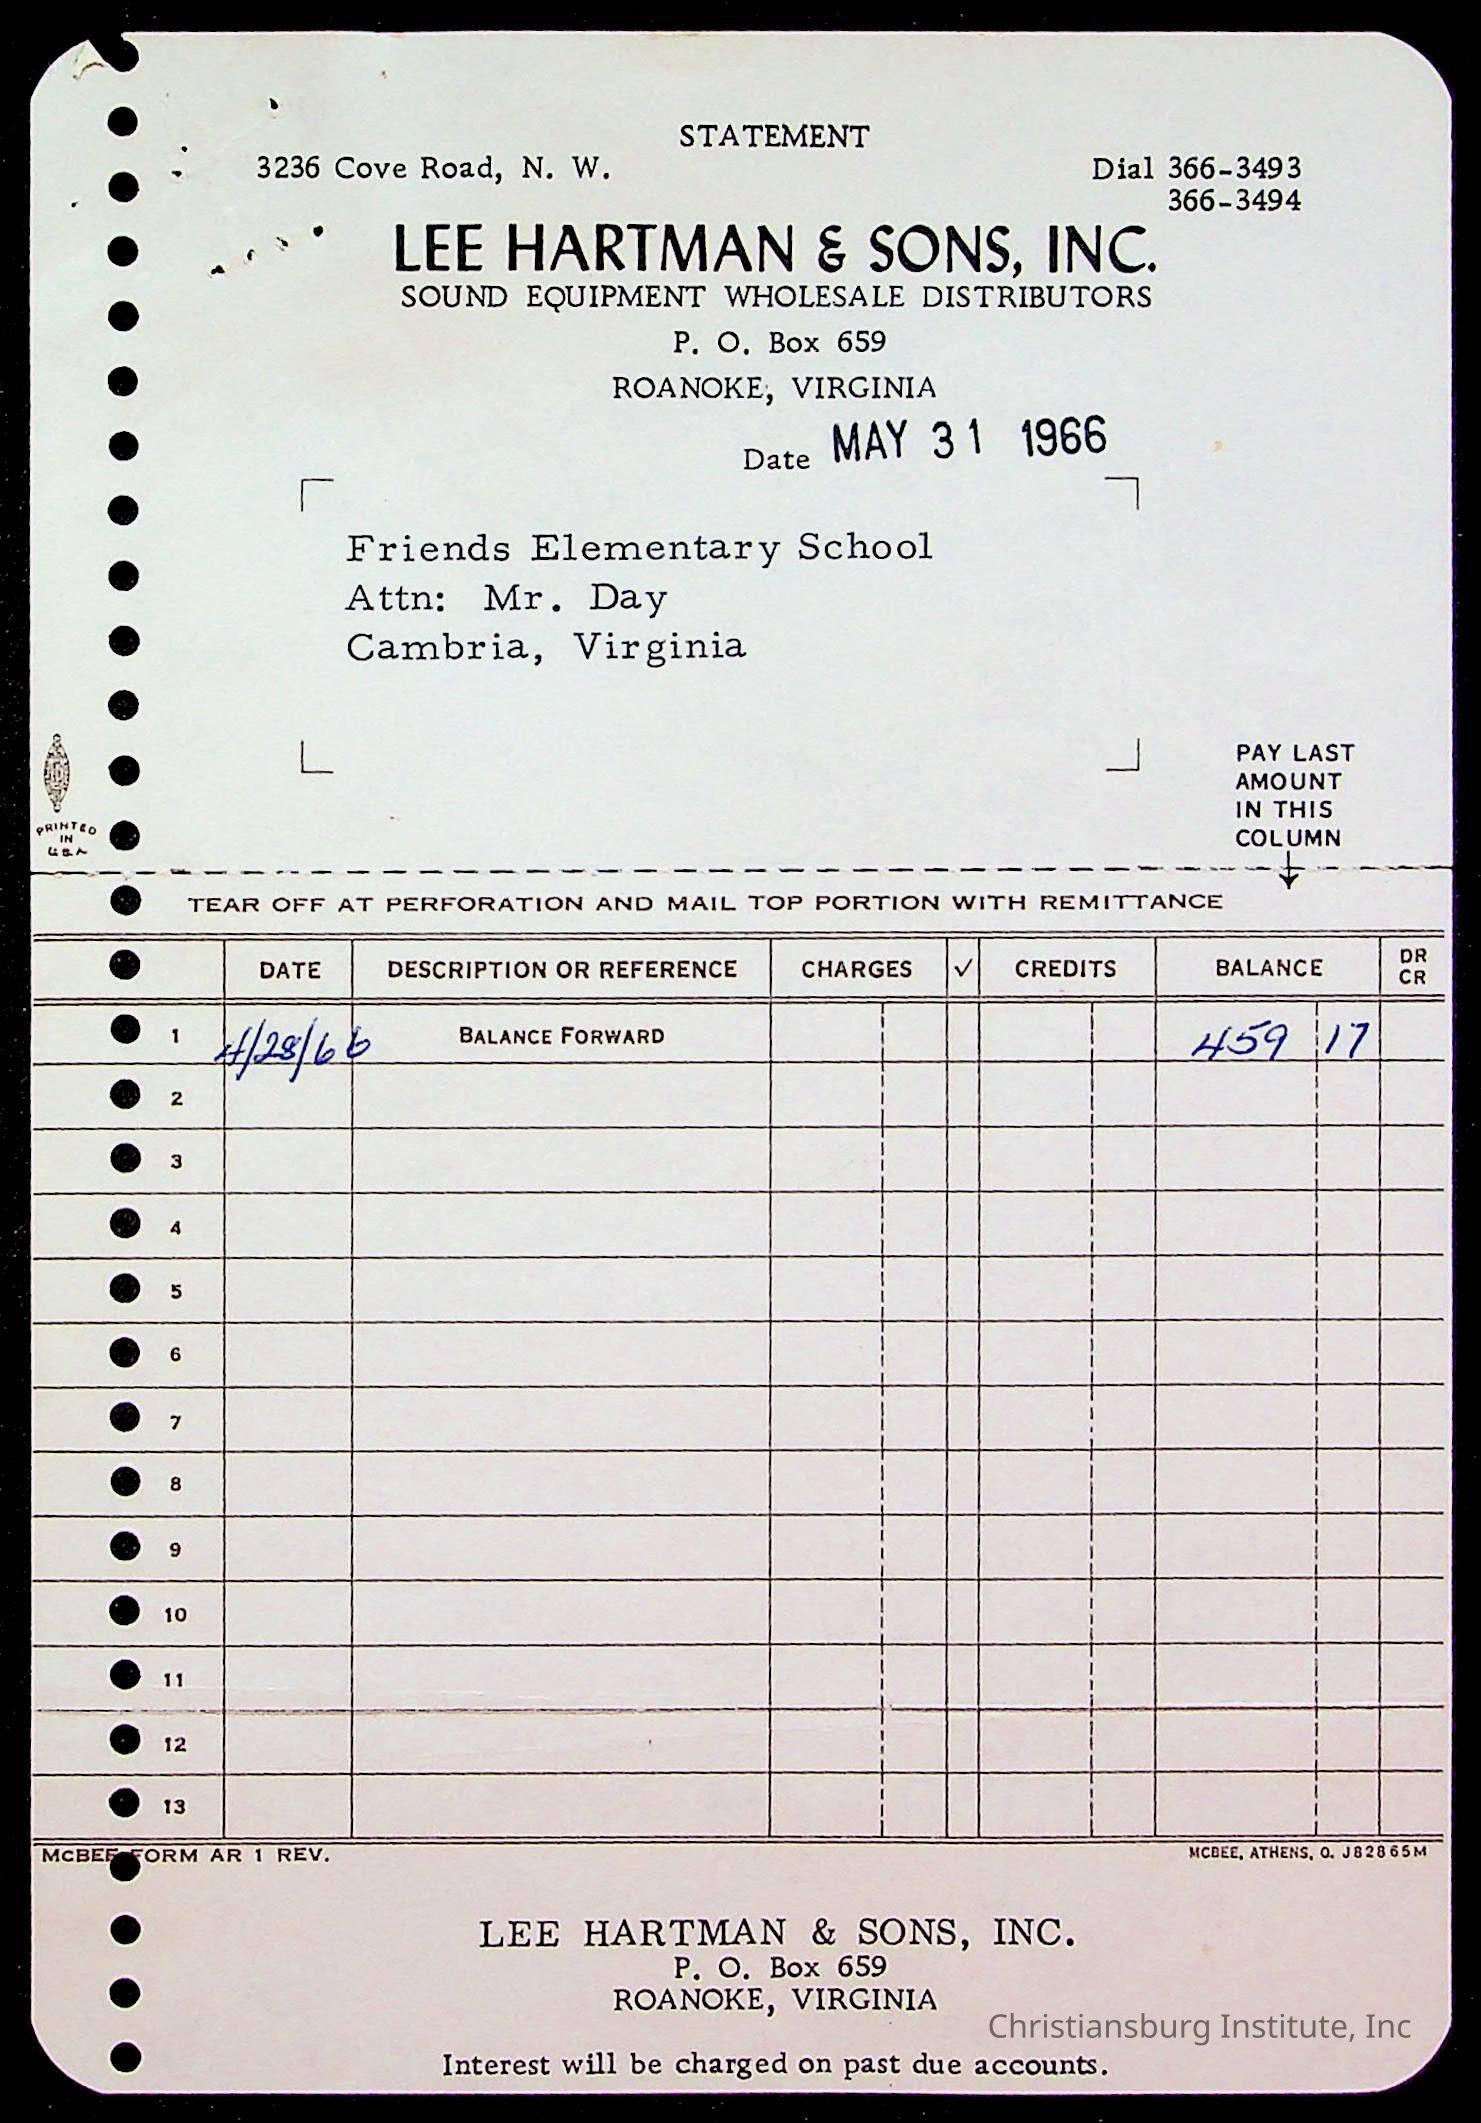 STATEMENT
3236 Cove Road, N. W.
Dial 366-3493
366-3494
LEE HARTMAN & SONS, INC.
SOUND EQUIPMENT WHOLESALE DISTRIBUTORS
P. O. Box 659
ROANOKE, VIRGINIA
Date MAY 31 1966
Friends Elementary School
Attn: Mr. Day
Cambria, Virginia
PAY LAST
AMOUNT
IN THIS
COLUMN
PRINTED
IN
U.S.A
TEAR OFF AT PERFORATION AND MAIL TOP PORTION WITH REMITTANCE
DATE DESCRIPTION OR REFERENCE CHARGES ✓ CREDITS BALANCE DR CR
1 4/28/66 BALANCE FORWARD 459 17
2
3
4
5
6
7
8
9
10
11
12
13
MCBEE FORM AR 1 REV. MCBEE, ATHENS, O. J82865M
LEE HARTMAN & SONS, INC.
P. O. Box 659
ROANOKE, VIRGINIA
Christiansburg Institute, Inc
Interest will be charged on past due accounts.